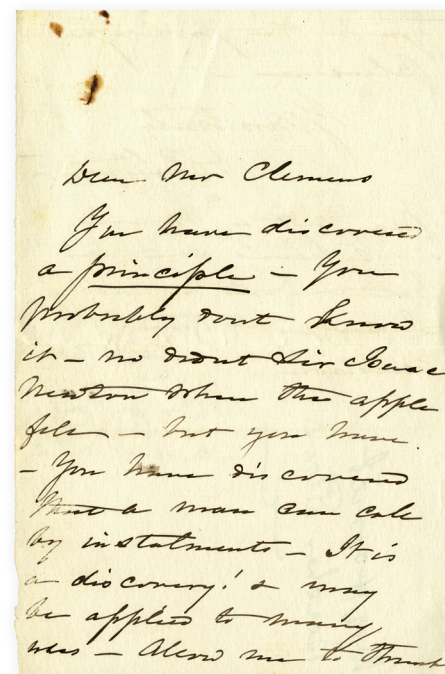 Dear Mr Clemens
You have discovered
a principle – You
probably dont know
it – no didnt Sir Isaac
Newton when the apple
fell – but you have.
– You have discovered
that a man can
by instalments – It is
a discovery! & may
be applied to many
uses – Allow me to